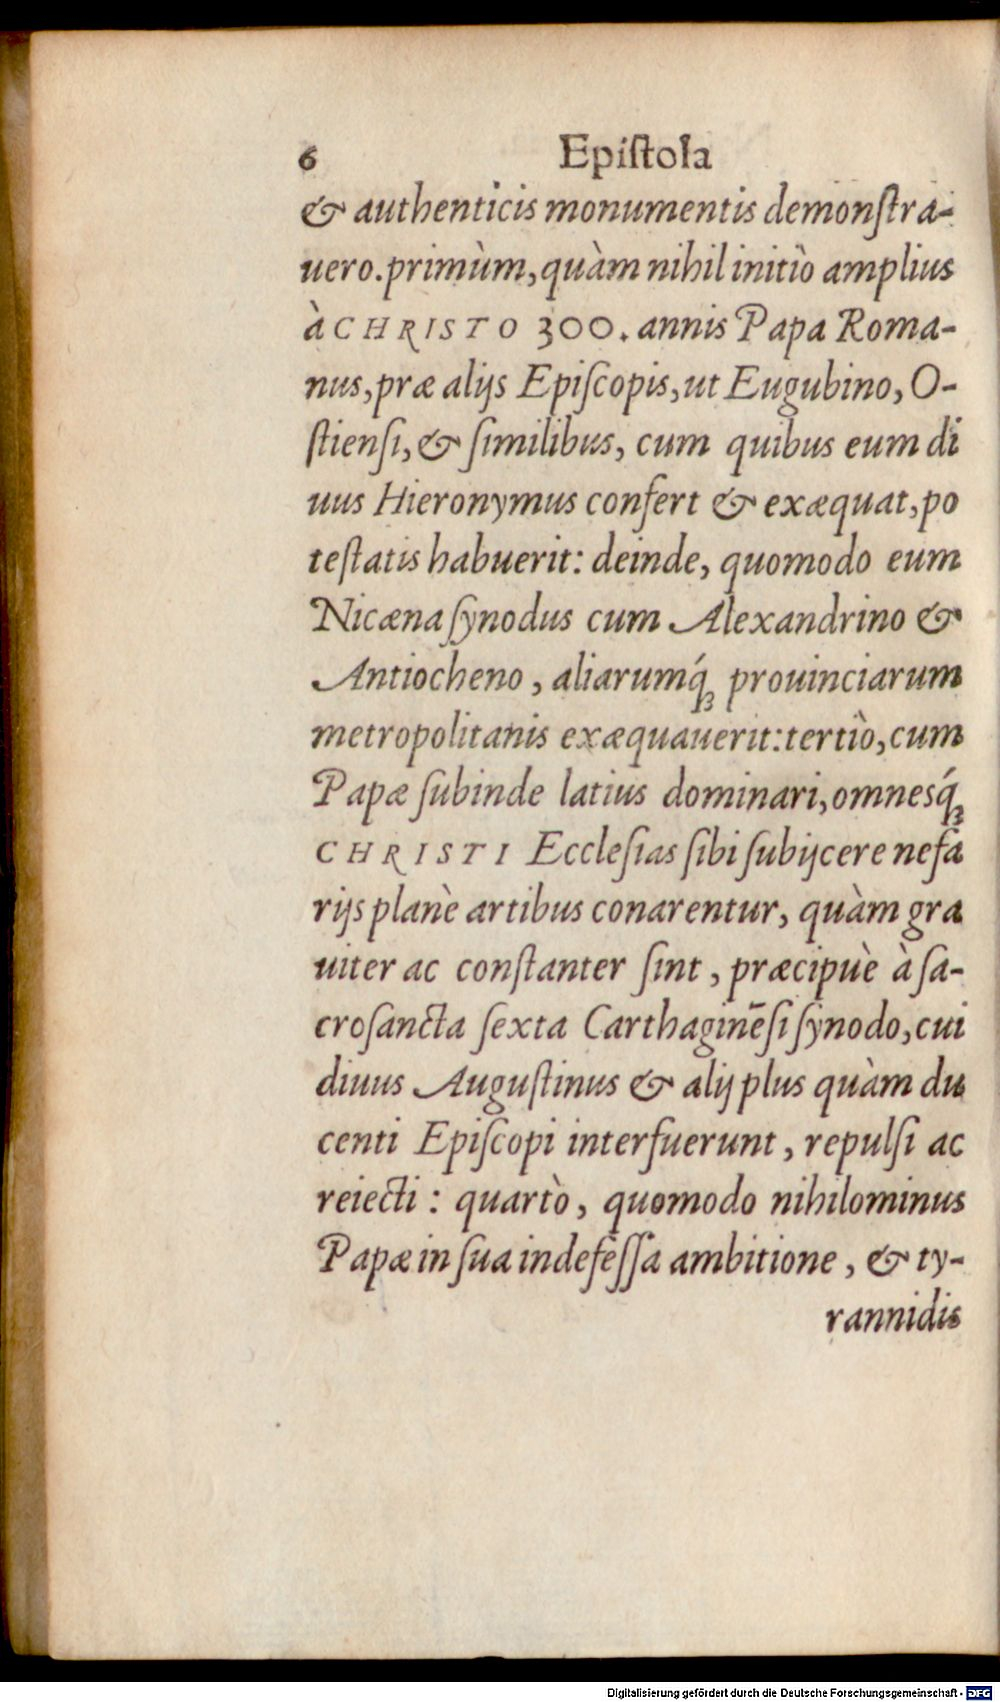 6 Epiſtola
& authenticis monumentis demonſtra-
uero.primùm,quàm nihil initiò amplius
à CHRISTO 300. annis Papa Roma-
nus,præ alijs Epiſcopis,ut Eugubino, O-
ſtienſi,& ſimilibus, cum quibus eum di
uus Hieronymus confert & exæquat,po
teſtatis habuerit: deinde, quomodo eum
Nicæna ſynodus cum Alexandrino &
Antiocheno, aliarumq́ꝫ prouinciarum
metropolitanis exæquauerit:tertiò,cum
Papæ ſubinde latius dominari,omnesq́ꝫ
CHRISTI Eccleſias ſibi ſubijcere nefa
rijs planè artibus conarentur, quàm gra
uiter ac conſtanter ſint, præcipuè à ſa-
croſancta ſexta Carthaginēſi ſynodo,cui
diuus Auguſtinus & alij plus quàm du
centi Epiſcopi interfuerunt, repulſi ac
reiecti: quartò, quomodo nihilominus
Papæ in ſua indefeſſa ambitione, & ty-
rannidis
Digitalisierung gefördert durch die Deutsche Forschungsgemeinschaft - DFG